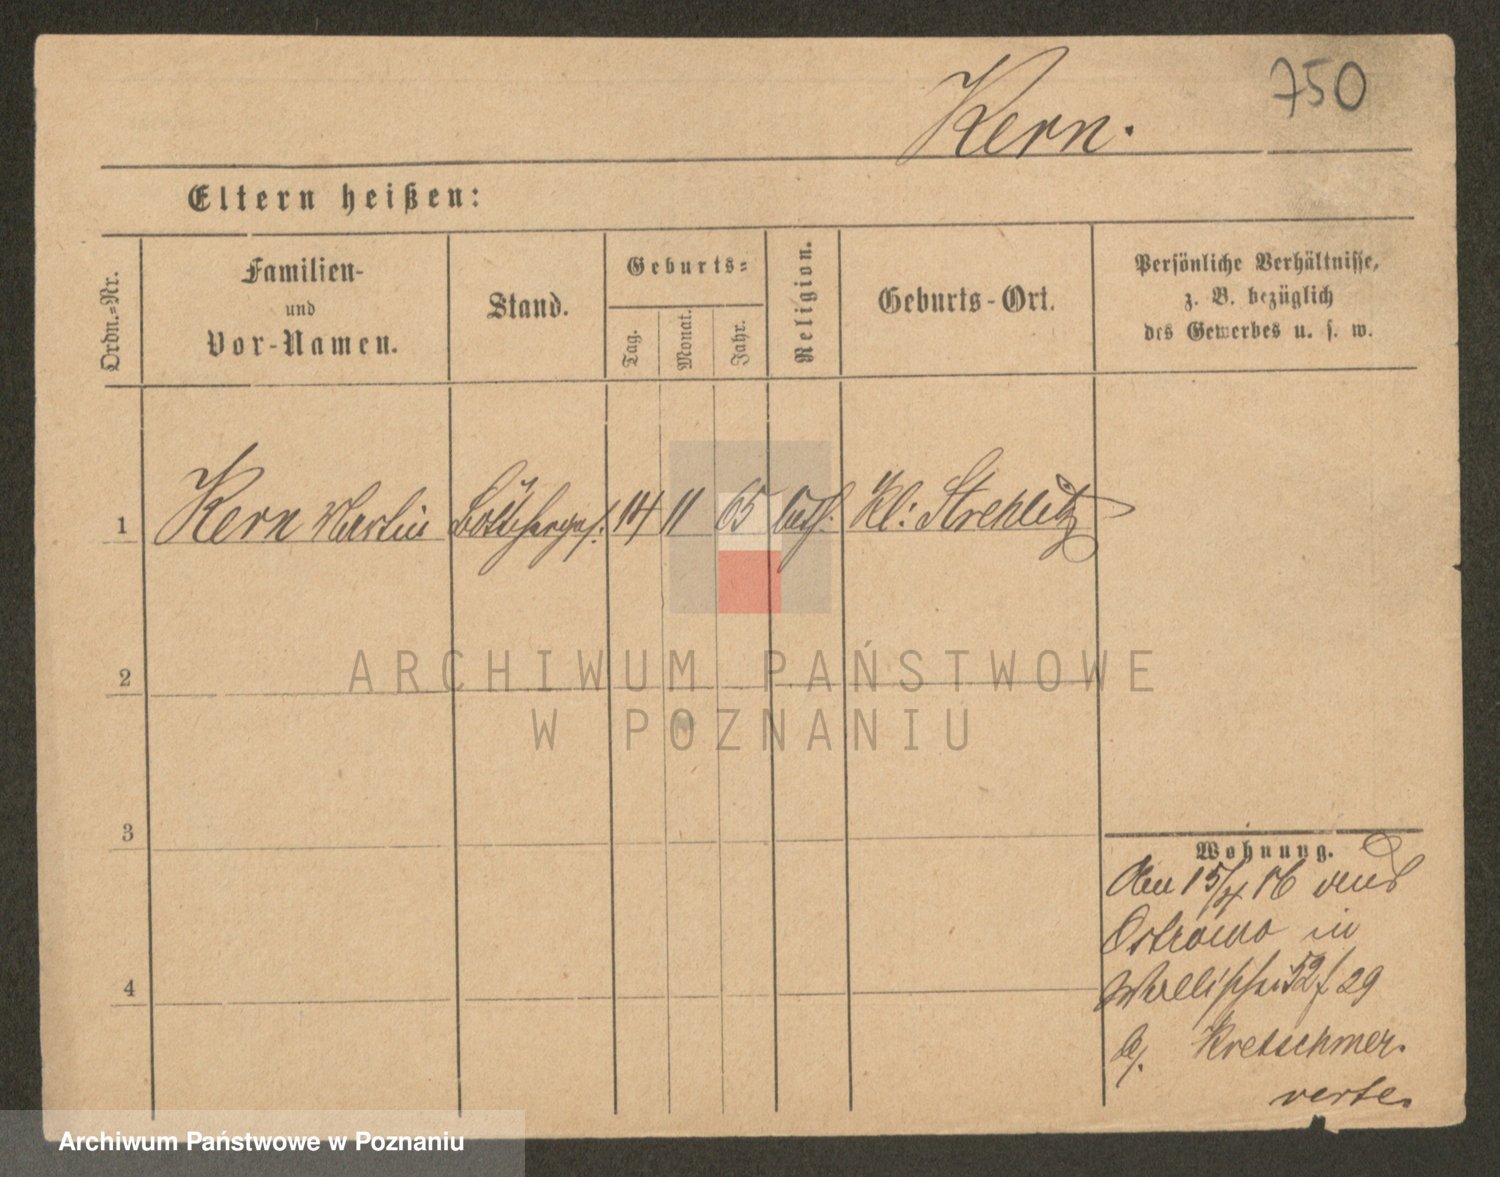 750
Kern.
Eltern heißen:
Ordn.-Nr.
Familien-
und
Vor-Namen.
Stand.
Geburts-
Tag.
Monat.
Jahr.
Religion.
Geburts-Ort.
Persönliche Verhältnisse,
z. B. bezüglich
des Gewerbes u. s. w.
1 Kern Martin Böttcherges. 14 11 65 kath. Kl: Strehlitz
2
3
4
ARCHIWUM PAŃSTWOWE
W POZNANIU
Wohnung.
15/4 16
Ostrowo in
Wallischei 52 f 29
b/. Kretschmer.
verte.
Archiwum Państwowe w Poznaniu